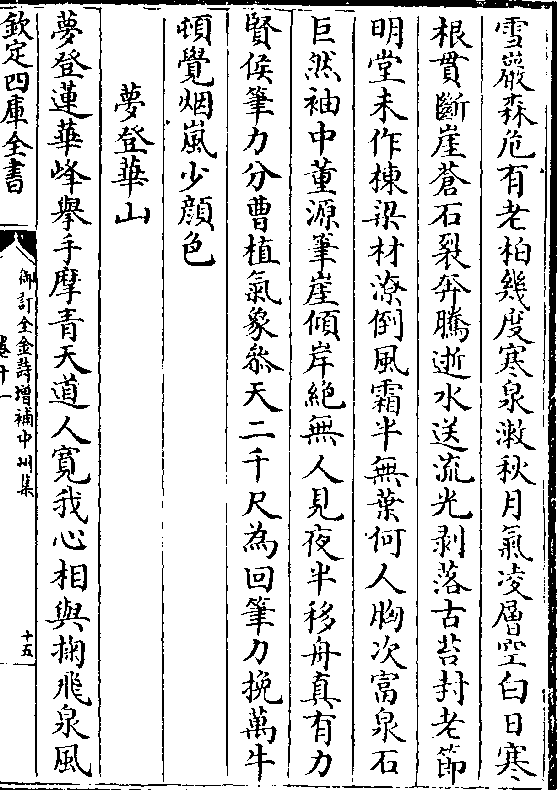 雪巖森危有老柏幾度寒泉漱秋月氣凌層空白日寒
根貫斷崖蒼石裂奔騰逝水送流光剥落古苔封老節
明堂未作棟梁材潦倒風霜半無葉何人胸次富泉石
巨然袖中董源筆崖傾岸絶無人見夜半移舟真有力
賢侯筆力分曹植氣象叅天二千尺為回筆力挽萬牛
頓覺烟嵐少顔色
夢登華山
夢登蓮華峰舉手摩青天道人寛我心相與掬飛泉風
欽定四庫全書
御訂全金詩増補中州集
卷十一
十五